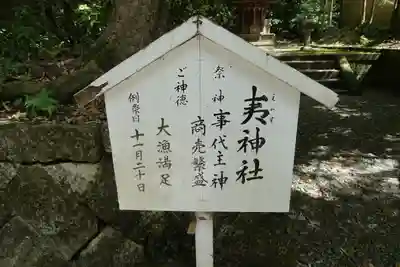 夷神社
えびす
祭神 事代主神
ご神徳 商売繁盛
大漁満足
例祭日 十一月二十日